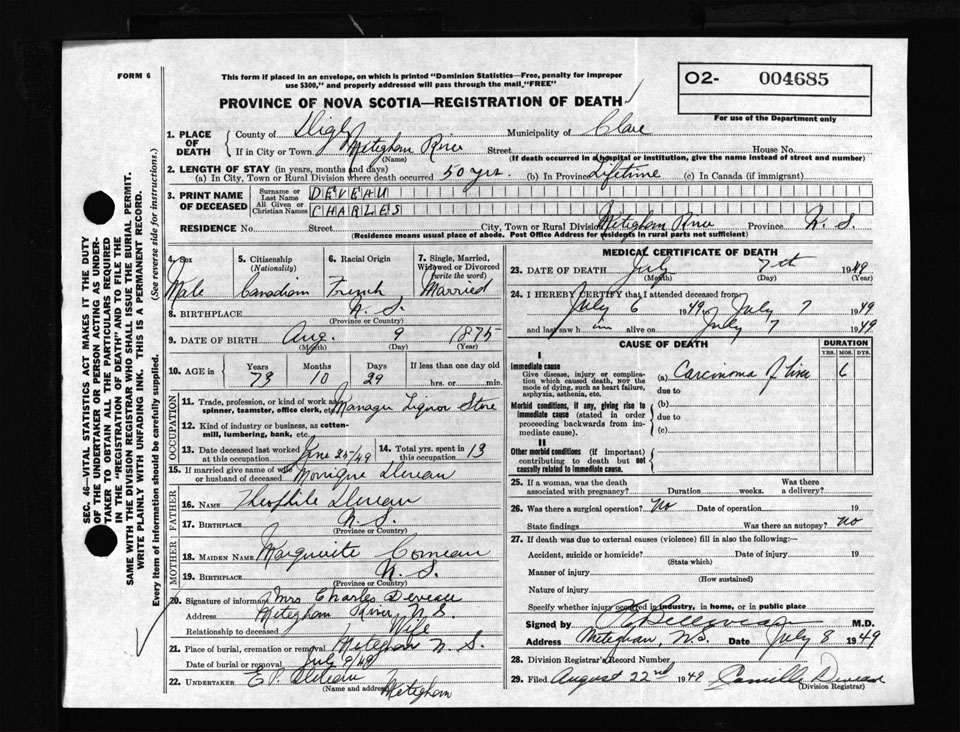 FORM 6
This form if placed in an envelope, on which is printed "Dominion Statistics—Free, penalty for improper
use $300," and properly addressed will pass through the mail "FREE"
O2- 004685
For use of the Department only
PROVINCE OF NOVA SCOTIA—REGISTRATION OF DEATH
1. PLACE OF DEATH
County of Digby Municipality of Clare
If in City or Town Meteghan River Street House No.
(Name) (If death occurred in a hospital or institution, give the name instead of street and number)
2. LENGTH OF STAY (in years, months and days)
(a) In City, Town or Rural Division where death occurred 50 yrs. (b) In Province Lifetime (c) In Canada (if immigrant)
3. PRINT NAME OF DECEASED
Surname or Last Name DEVEAU
All Given or Christian Names CHARLES
RESIDENCE No. Street City, Town or Rural Division Meteghan River Province N. S.
(Residence means usual place of abode. Post Office Address for residents in rural parts not sufficient)
4. Sex Male
5. Citizenship (Nationality) Canadian
6. Racial Origin French
7. Single, Married, Widowed or Divorced (write the word) Married
8. BIRTHPLACE N. S.
(Province or Country)
9. DATE OF BIRTH Aug. 9 1875
(Month) (Day) (Year)
10. AGE in Years Months Days If less than one day old
73 10 29 hrs. or min.
OCCUPATION
11. Trade, profession, or kind of work as spinner, teamster, office clerk, etc. Manager Liquor Store
12. Kind of industry or business, as cotton-mill, lumbering, bank, etc.
13. Date deceased last worked at this occupation June 25/49
14. Total yrs. spent in this occupation 13
15. If married give name of wife or husband of deceased Monique Deveau
FATHER
16. NAME Theophile Deveau
17. BIRTHPLACE N. S.
(Province or Country)
MOTHER
18. MAIDEN NAME Marguerite Comeau
19. BIRTHPLACE N. S.
(Province or Country)
20. Signature of informant Mrs Charles Deveau
Address Meteghan River, N. S.
Relationship to deceased Wife
21. Place of burial, cremation or removal Meteghan N. S.
Date of burial or removal July 9/49
22. UNDERTAKER E. P. Deveau Meteghan
(Name and address)
MEDICAL CERTIFICATE OF DEATH
23. DATE OF DEATH July 7th 1949
(Month) (Day) (Year)
24. I HEREBY CERTIFY that I attended deceased from
July 6 1949 to July 7 1949
and last saw him alive on July 7 1949
CAUSE OF DEATH DURATION
YRS. MOS. DYS.
I
Immediate cause
Give disease, injury or complication which caused death, not the mode of dying, such as heart failure, asphyxia, asthenia, etc.
(a) Carcinoma of liver 6
due to
Morbid conditions, if any, giving rise to immediate cause (stated in order proceeding backwards from immediate cause).
(b)
due to
(c)
II
Other morbid conditions (if important) contributing to death but not causally related to immediate cause.
25. If a woman, was the death associated with pregnancy? Duration weeks. Was there a delivery?
26. Was there a surgical operation? No Date of operation 19
State findings Was there an autopsy? No
27. If death was due to external causes (violence) fill in also the following:—
Accident, suicide or homicide? Date of injury 19
(State which)
Manner of injury
(How sustained)
Nature of injury
Specify whether injury occurred in industry, in home, or in public place
Signed by M.D.
Address Meteghan, N.S. Date July 8 1949
28. Division Registrar's Record Number
29. Filed August 22nd 1949 Camille Deveau
(Division Registrar)
SEC. 46—VITAL STATISTICS ACT MAKES IT THE DUTY
OF THE UNDERTAKER OR PERSON ACTING AS UNDER-
TAKER TO OBTAIN ALL THE PARTICULARS REQUIRED
IN THE "REGISTRATION OF DEATH" AND TO FILE THE
SAME WITH THE DIVISION REGISTRAR WHO SHALL ISSUE THE BURIAL PERMIT.
WRITE PLAINLY WITH UNFADING INK. THIS IS A PERMANENT RECORD.
Every item of information should be carefully supplied. (See reverse side for instructions.)